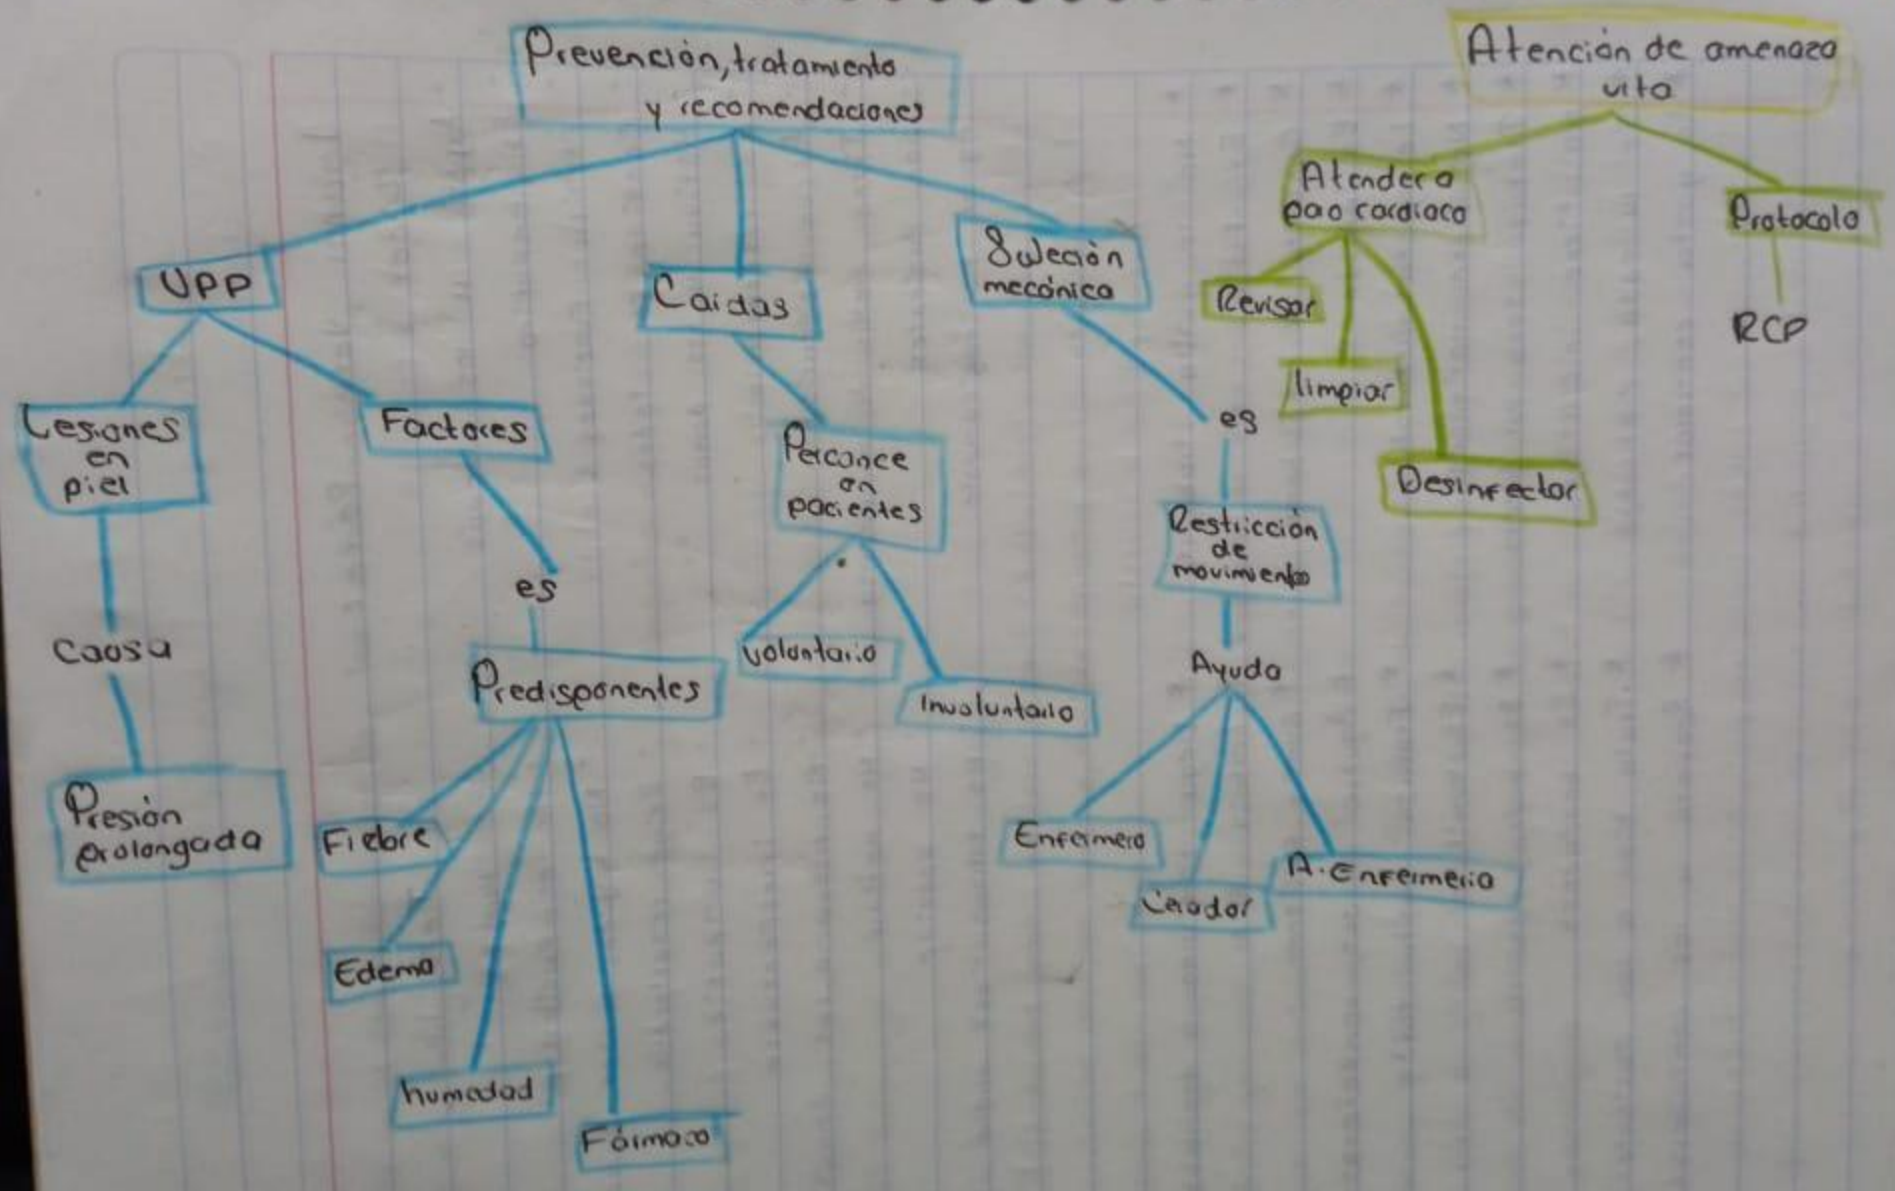 Prevención, tratamiento
y recomendaciones
UPP
Lesiones
en
piel
Causa
Presión
prolongada
Factores
es
Predisponentes
Fiebre
Edema
humedad
Fármaco
Caidas
Percance
en
pacientes
voluntario
Involuntario
Sujeción
mecánica
es
Restricción
de
movimiento
Ayuda
Enfermero
A. Enfermeria
Atención de amenaza
vita
Atender a
pao cardiaco
Revisar
limpiar
Desinfectar
Protocolo
RCP